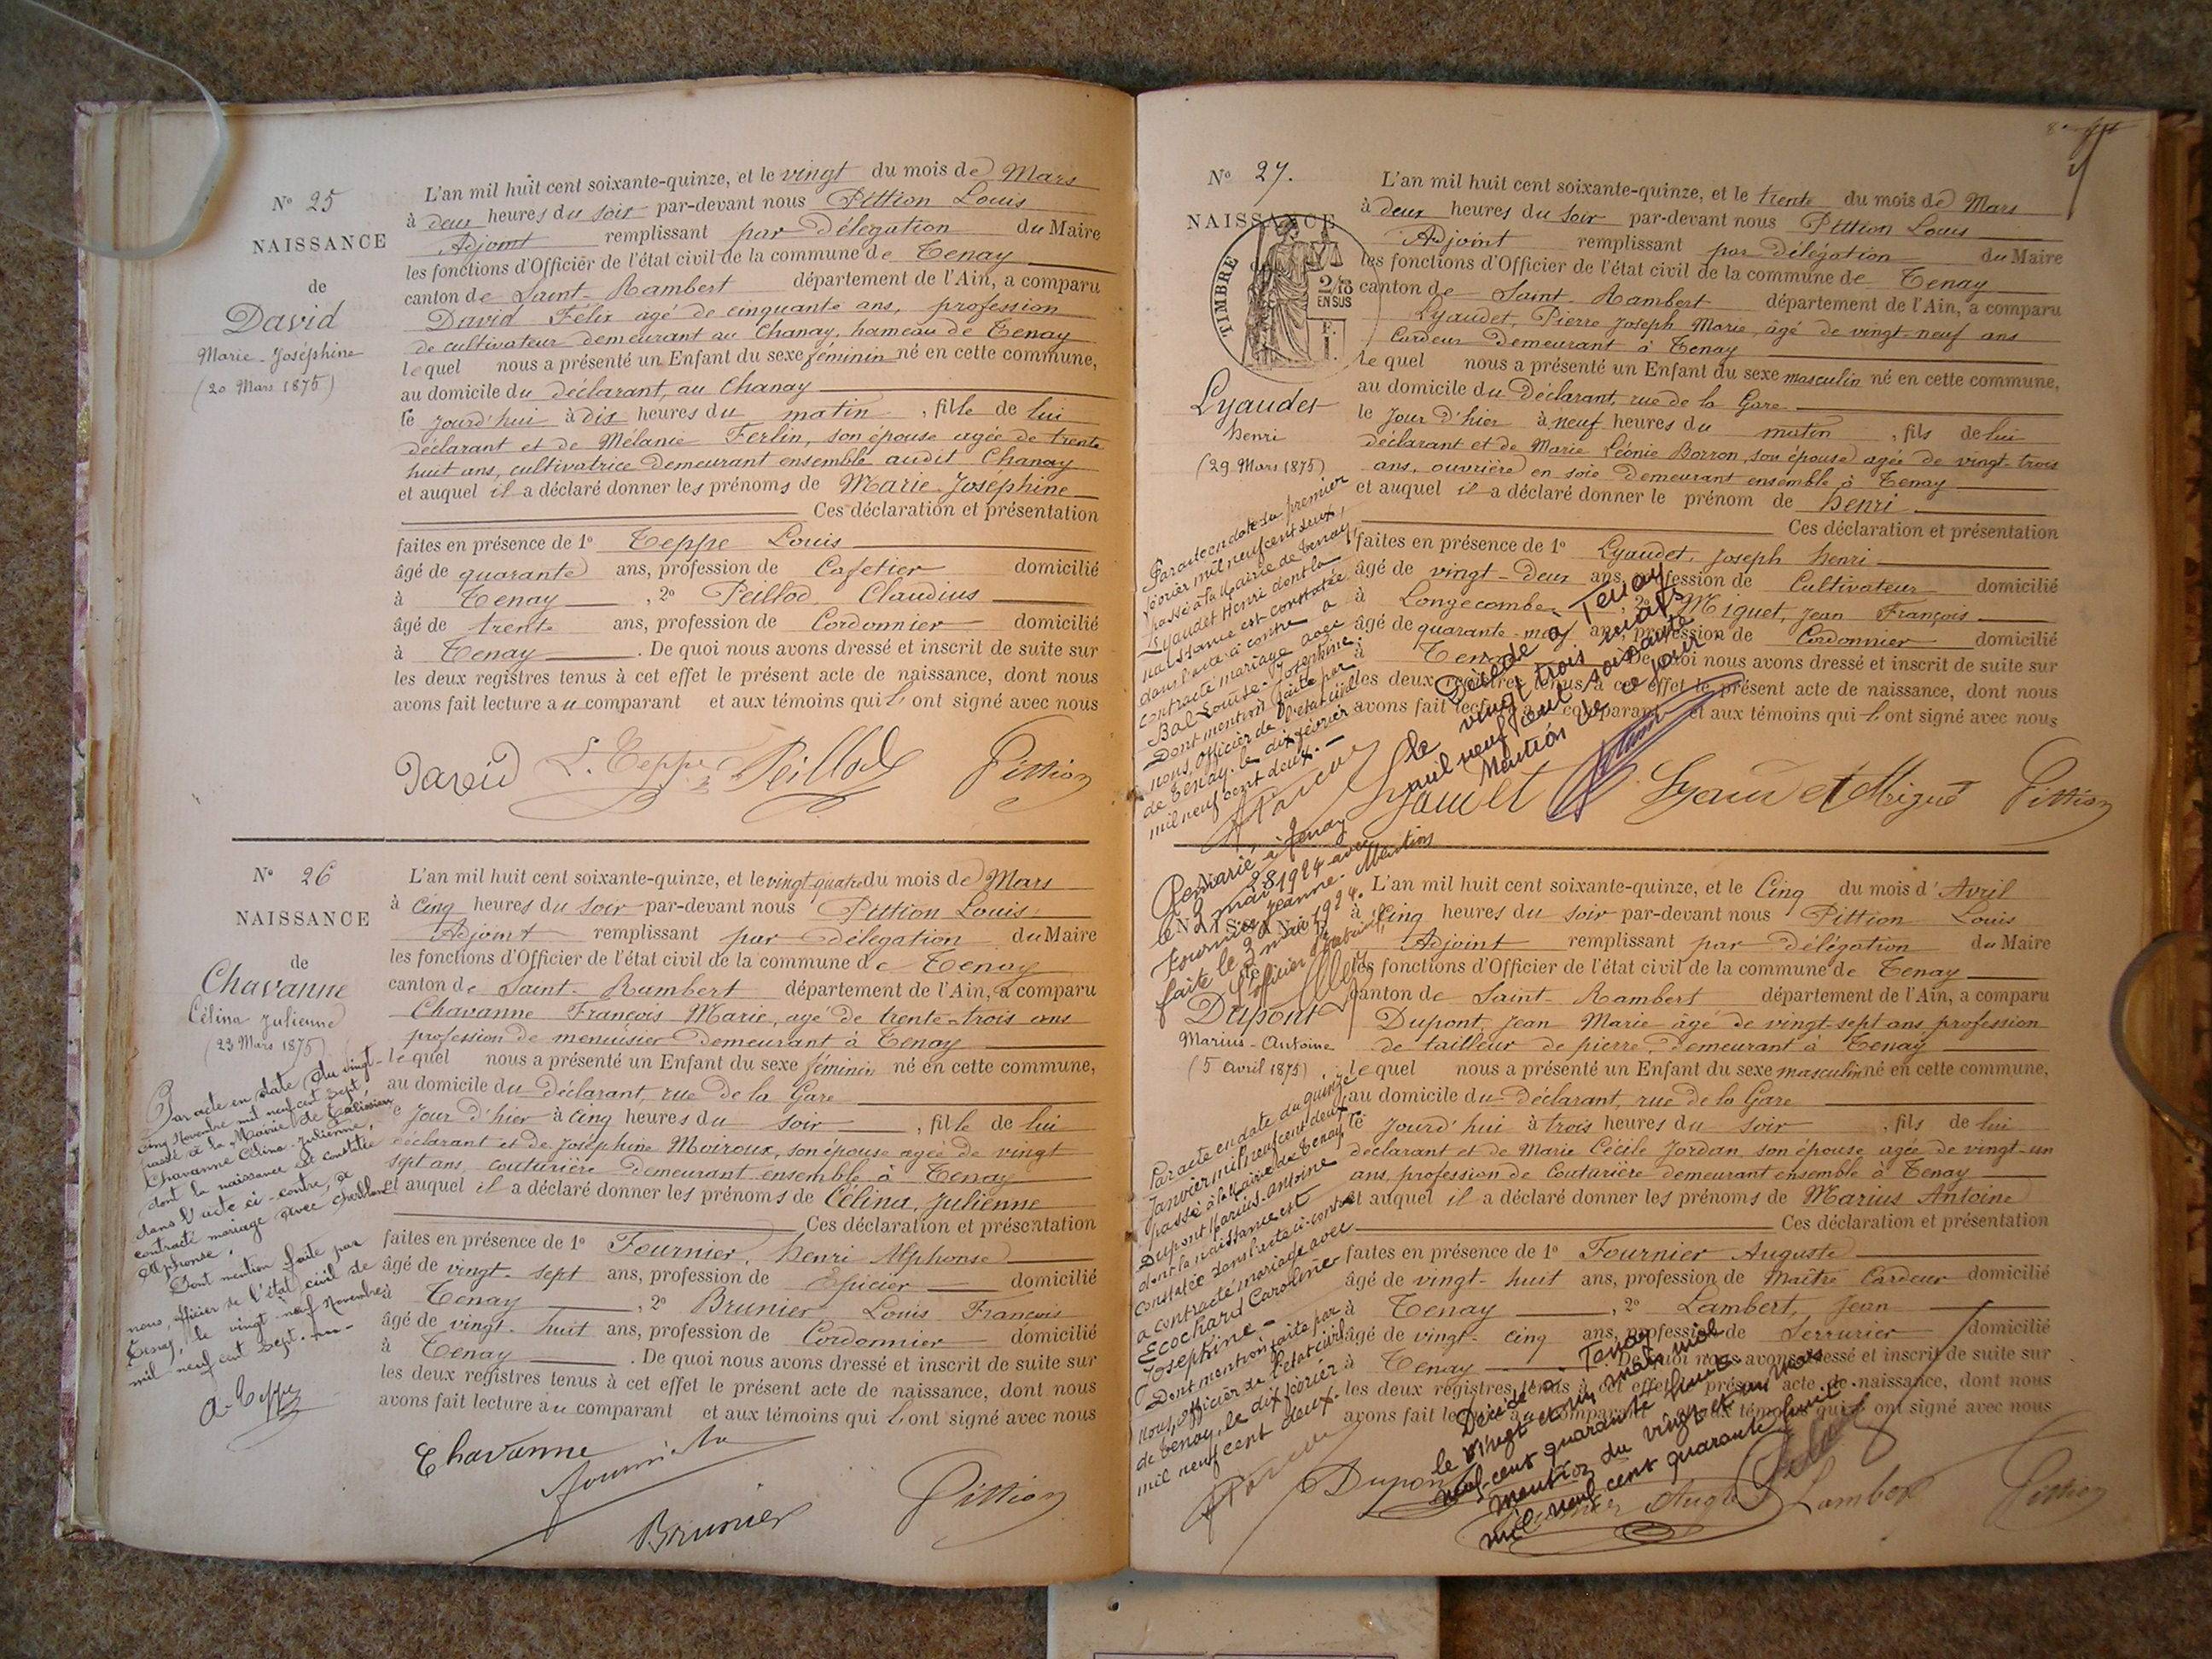 N° 25
NAISSANCE
de
David
Marie-Joséphine
(20 Mars 1875)
L'an mil huit cent soixante-quinze, et le vingt du mois de Mars
à deux heures du soir par-devant nous Pittion Louis
Adjoint remplissant par délégation du Maire
les fonctions d'Officier de l'état civil de la commune de Tenay
canton de Saint-Rambert département de l'Ain, a comparu
David Félix agé de cinquante ans, profession
de cultivateur demeurant au Chanay, hameau de Tenay
lequel nous a présenté un Enfant du sexe féminin né en cette commune,
au domicile du déclarant, au Chanay
le jourd'hui à dix heures du matin, fille de lui
déclarant et de Mélanie Ferlin, son épouse agée de trente
huit ans, cultivatrice demeurant ensemble audit Chanay
et auquel il a déclaré donner les prénoms de Marie Joséphine
Ces déclaration et présentation
faites en présence de 1° Teppe Louis
âgé de quarante ans, profession de Cafetier domicilié
à Tenay, 2° Peillod Claudius
âgé de trente ans, profession de Cordonnier domicilié
à Tenay. De quoi nous avons dressé et inscrit de suite sur
les deux registres tenus à cet effet le présent acte de naissance, dont nous
avons fait lecture au comparant et aux témoins qui l'ont signé avec nous
David L. Teppe Peillod Pittion
N° 26
NAISSANCE
de
Chavanne
Célina Julienne
(23 Mars 1875)
Par acte en date du vingt-
cinq Novembre mil neuf cent sept,
passé à la Mairie de
Chavanne Célina-Julienne,
dont la naissance est constatée
dans l'acte ci-contre, a
contracté mariage avec
Alphonse.
Dont mention faite par
nous, officier de l'état civil de
Tenay, le vingt-neuf Novembre
mil neuf cent sept.
A. Teppe
L'an mil huit cent soixante-quinze, et le vingt-quatre du mois de Mars
à cinq heures du soir par-devant nous Pittion Louis
Adjoint remplissant par délégation du Maire
les fonctions d'Officier de l'état civil de la commune de Tenay
canton de Saint-Rambert département de l'Ain, a comparu
Chavanne François Marie, agé de trente-trois ans
profession de menuisier demeurant à Tenay
lequel nous a présenté un Enfant du sexe féminin né en cette commune,
au domicile du Déclarant, rue de la Gare
le jour d'hier à cinq heures du soir, fille de lui
déclarant et de Joséphine Moiroux, son épouse agée de vingt
sept ans, couturière demeurant ensemble à Tenay
et auquel il a déclaré donner les prénoms de Célina, Julienne
Ces déclaration et présentation
faites en présence de 1° Fournier, henri Alphonse
âgé de vingt-sept ans, profession de Epicier domicilié
à Tenay, 2° Brunier Louis François
âgé de vingt-huit ans, profession de Cordonnier domicilié
à Tenay. De quoi nous avons dressé et inscrit de suite sur
les deux registres tenus à cet effet le présent acte de naissance, dont nous
avons fait lecture au comparant et aux témoins qui l'ont signé avec nous
Chavanne
Brunier Pittion
N° 27.
NAISSANCE
TIMBRE
EN SUS
Lyaudet
henri
(29 Mars 1875)
Par acte en date du premier
février mil neuf cent deux,
passé à la Mairie de Tenay,
Lyaudet Henri dont la
naissance est constatée
dans l'acte ci-contre a
contracté mariage avec
Bal Louise-Joséphine.
Dont mention faite par
nous, officier de l'état civil
de Tenay, le dix février
mil neuf cent deux.
L'an mil huit cent soixante-quinze, et le trente du mois de Mars
à deux heures du soir par-devant nous Pittion Louis
Adjoint remplissant par délégation du Maire
les fonctions d'Officier de l'état civil de la commune de Tenay
canton de Saint-Rambert département de l'Ain, a comparu
Lyaudet, Pierre Joseph Marie, agé de vingt-neuf ans
Cardeur demeurant à Tenay
lequel nous a présenté un Enfant du sexe masculin né en cette commune,
au domicile du Déclarant, rue de la Gare
le jour d'hier à neuf heures du matin, fils de lui
déclarant et de Marie Léonie Borron, son épouse agée de vingt-trois
ans, ouvrière en soie demeurant ensemble à Tenay
et auquel il a déclaré donner le prénom de henri
Ces déclaration et présentation
faites en présence de 1° Lyaudet, Joseph henri
âgé de vingt-deux ans, profession de Cultivateur domicilié
à Longecombe, 2° Miguet, Jean François
âgé de quarante-neuf ans, profession de Cordonnier domicilié
à Tenay. De quoi nous avons dressé et inscrit de suite sur
les deux registres tenus à cet effet le présent acte de naissance, dont nous
avons fait lecture au comparant et aux témoins qui l'ont signé avec nous
Décédé à Tenay
le vingt trois mars
mil neuf cent soixante
Mention de ce jour
Lyaudet Lyaudet Miguet Pittion
Remarié à Tenay
le 2 mai 1924 avec
Fournier Jeanne. Mention
faite le 3 mai 1924.
N° 28
NAISSANCE
Dupont
Marius-Antoine
(5 avril 1875)
Par acte en date du quinze
Janvier mil neuf cent deux
passé à la Mairie de Tenay
Dupont Marius-Antoine
dont la naissance est
constatée dans l'acte ci-contre
a contracté mariage avec
Ecochard Caroline
Joséphine
Dont mention faite par
nous, officier de l'état civil
de Tenay, le dix février
mil neuf cent deux.
L'an mil huit cent soixante-quinze, et le Cinq du mois d'Avril
à cinq heures du soir par-devant nous Pittion Louis
Adjoint remplissant par délégation du Maire
les fonctions d'Officier de l'état civil de la commune de Tenay
canton de Saint-Rambert département de l'Ain, a comparu
Dupont, Jean Marie âgé de vingt-sept ans profession
de tailleur de pierre, demeurant à Tenay
lequel nous a présenté un Enfant du sexe masculin né en cette commune,
au domicile du Déclarant, rue de la Gare
le jourd'hui à trois heures du soir, fils de lui
déclarant et de Marie Cécile Jordan son épouse agée de vingt-un
ans, profession de Couturière demeurant ensemble à Tenay
et auquel il a déclaré donner les prénoms de Marius Antoine
Ces déclaration et présentation
faites en présence de 1° Fournier Auguste
âgé de vingt-huit ans, profession de Maître Cardeur domicilié
à Tenay, 2° Lambert, Jean
âgé de vingt-cinq ans, profession de Serrurier domicilié
à Tenay. De quoi nous avons dressé et inscrit de suite sur
les deux registres tenus à cet effet le présent acte de naissance, dont nous
avons fait lecture au comparant et aux témoins qui l'ont signé avec nous
Décédé à Tenay
le vingt et un mars mil
neuf cent quarante huit
Mention du vingt et un Mars
mil neuf cent quarante huit
Dupont Lambert Pittion